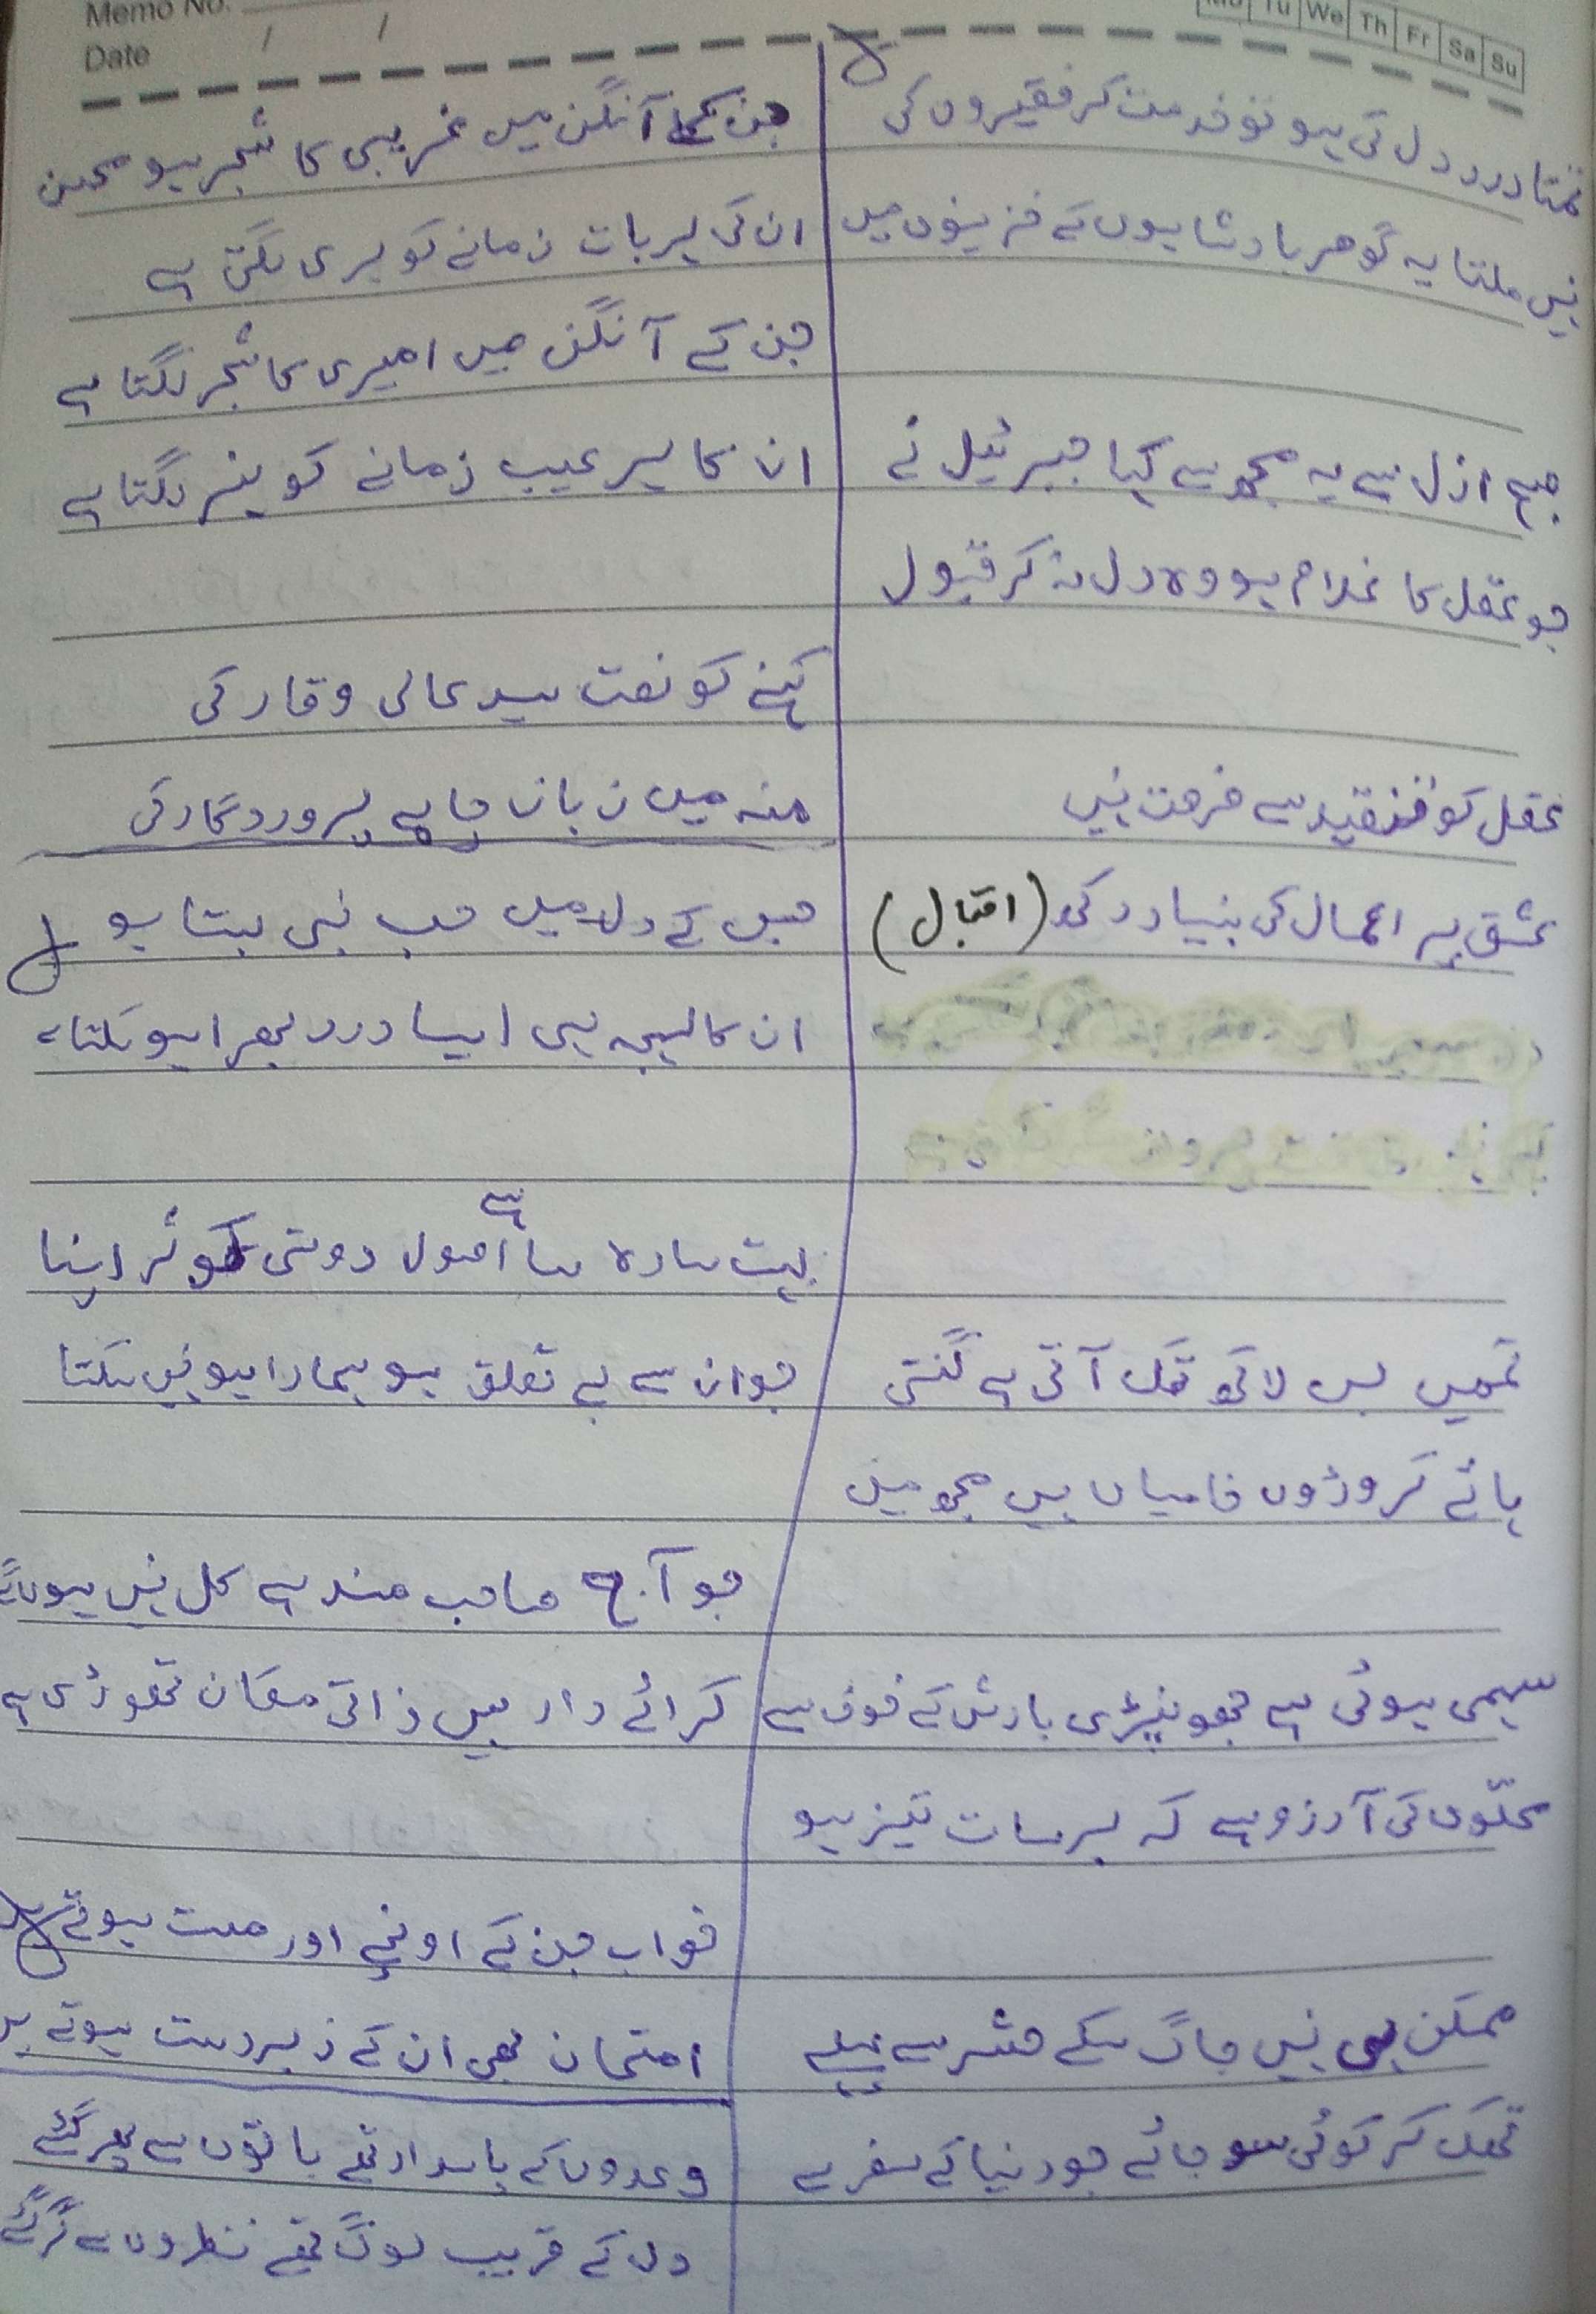 Memo No.
Date / /
Mo Tu We Th Fr Sa Su
تمنا درد دل کی ہو تو خدمت کر فقیروں کی
نہیں ملتا یہ گوہر بادشاہوں کے خزینوں میں
صبح ازل ہے یہ مجھ سے کہا جبرئیل نے
جو عقل کا غلام ہو وہ دل نہ کر قبول
عقل کو تنقید سے فرصت نہیں
عشق پر اعمال کی بنیاد رکھ (اقبال)
تمہیں بس لاکھ تک آتی ہے گنتی
ہائے کروڑوں خامیاں ہیں مجھ میں
سہمی ہوئی ہے جھونپڑی بارش کے خوف سے
محلّوں کی آرزو ہے کہ برسات تیز ہو
ممکن ہی نہیں جاگ سکے حشر سے پہلے
تھک کر کوئی سو جائے جو دنیا کے سفر سے
جن کے آنگن میں غریبی کا شجر ہو محسن
ان کی ہر بات زمانے کو بری لگتی ہے
جن کے آنگن میں امیری کا شجر لگتا ہے
ان کا ہر عیب زمانے کو ہنر لگتا ہے
کہنے کو نعت سید عالی وقار کی
منہ میں زباں چاہیے پروردگار کی
جس کے دل میں حب نبی بستا ہو
ان کا لہجہ ہی ایسا درد بھرا ہو سکتا ہے
بہت سادہ سا ہے اصول دوستی کوثر اپنا
جو ان سے بے تعلق ہو ہمارا ہو نہیں سکتا
جو آج صاحب مسند ہے کل نہیں ہوں گے
کرائے دار ہیں ذاتی مکان تھوڑی ہے
خواب جن کے اونچے اور مست ہوتے ہیں
امتحان بھی ان کے زبردست ہوتے ہیں
وعدوں کے پاسدار تھے باتوں سے پھر گئے
دل کے قریب لوگ تھے نظروں سے گر گئے